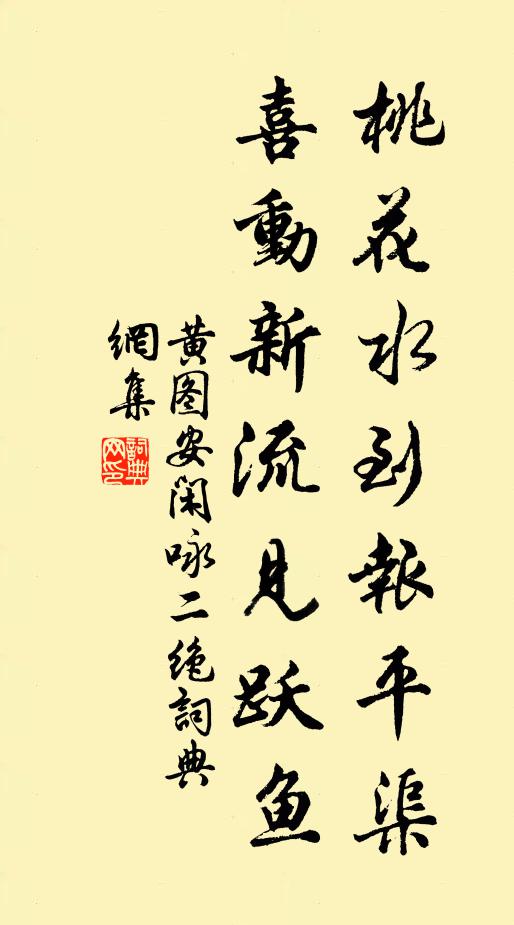 桃花水到報平渠
喜動新流見跃鱼
黄图安闲咏二绝詞典
網集
詞典
网印